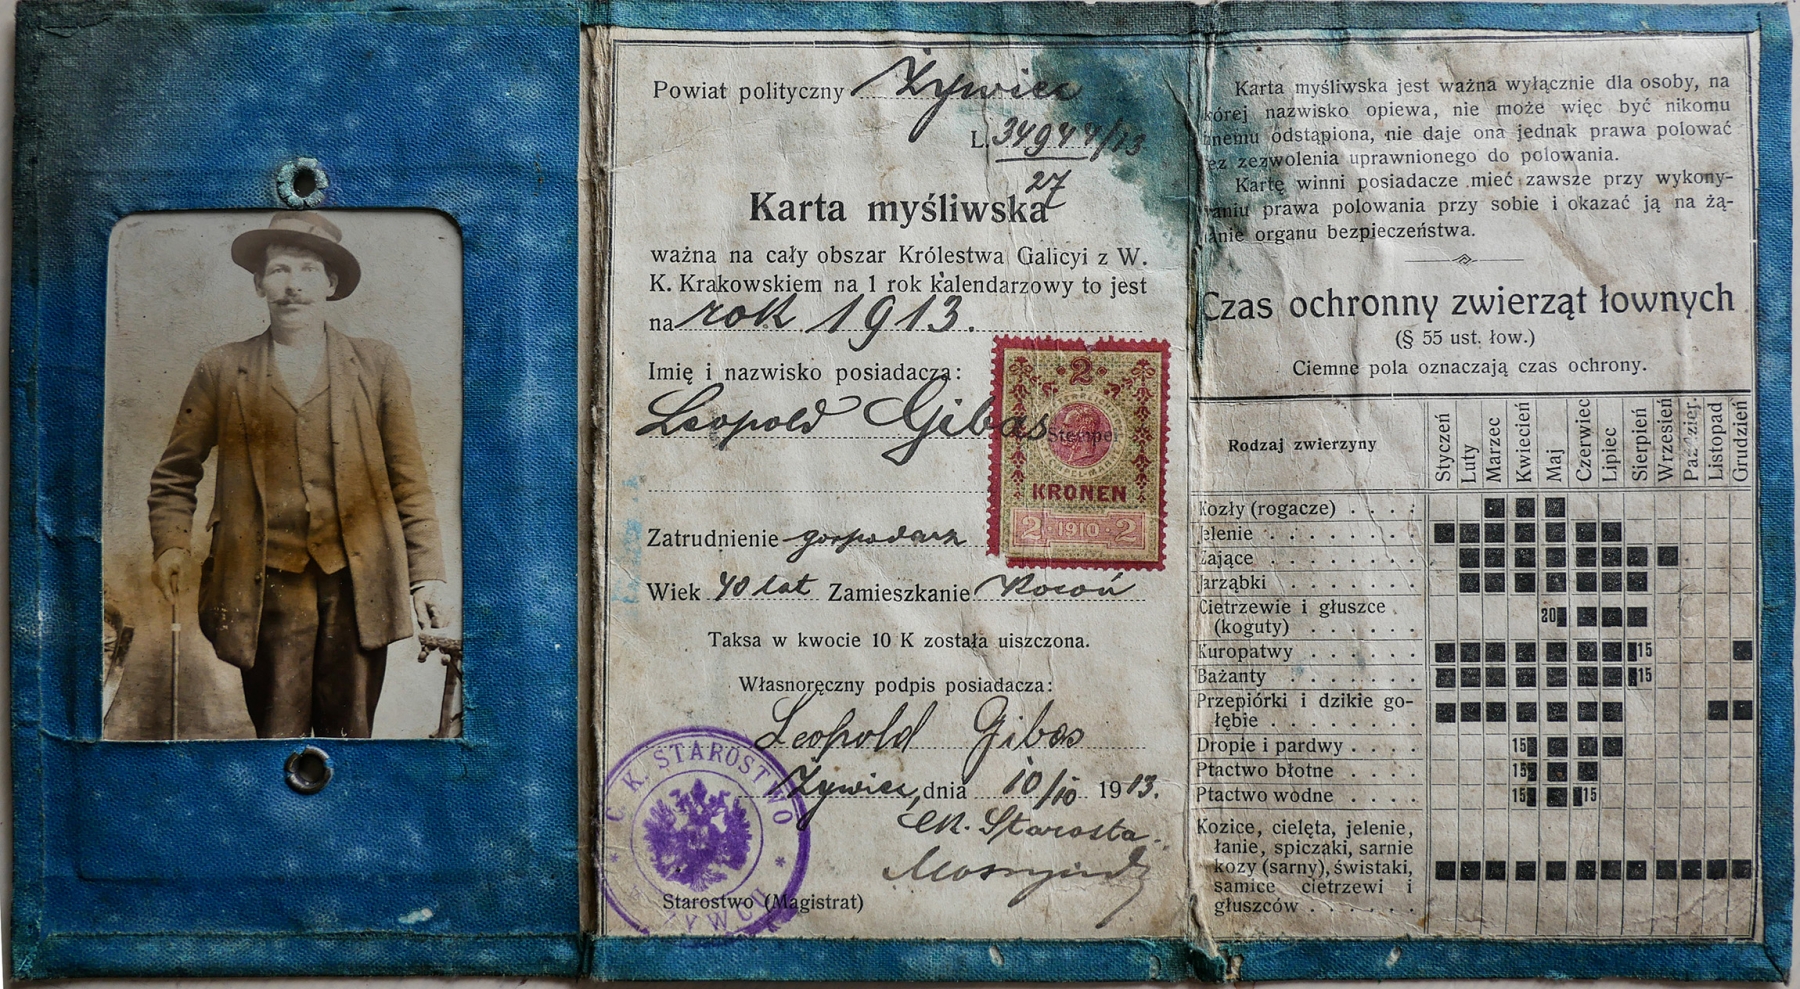 Powiat polityczny Żywiec
L. 34944/13
27
Karta myśliwska
ważna na cały obszar Królestwa Galicyi z W.
K. Krakowskiem na 1 rok kalendarzowy to jest
na rok 1913.
Imię i nazwisko posiadacza:
Leopold Gibas
2
Stempel
KRONEN
2 · 1910 · 2
Zatrudnienie gospodarz
Wiek 40 lat Zamieszkanie Kocoń
Taksa w kwocie 10 K została uiszczona.
Własnoręczny podpis posiadacza:
Leopold Gibas
Żywiec, dnia 10/10 1913.
CK. Starosta
Starostwo (Magistrat)
C. K. STAROSTWO
* W ŻYWCU *
Karta myśliwska jest ważna wyłącznie dla osoby, na
której nazwisko opiewa, nie może więc być nikomu
innemu odstąpiona, nie daje ona jednak prawa polować
bez zezwolenia uprawnionego do polowania.
Kartę winni posiadacze mieć zawsze przy wykony-
waniu prawa polowania przy sobie i okazać ją na żą-
danie organu bezpieczeństwa.
Czas ochronny zwierząt łownych
(§ 55 ust. łow.)
Ciemne pola oznaczają czas ochrony.
Rodzaj zwierzyny Styczeń Luty Marzec Kwiecień Maj Czerwiec Lipiec Sierpień Wrzesień Paździer. Listopad Grudzień
Kozły (rogacze) . . . .
Jelenie . . . . . . .
Zające . . . . . . .
Jarząbki . . . . . .
Cietrzewie i głuszce
(koguty) . . . . . . 20
Kuropatwy . . . . . 15
Bażanty . . . . . . 15
Przepiórki i dzikie go-
łębie . . . . . . .
Dropie i pardwy . . . . 15
Ptactwo błotne . . . . 15
Ptactwo wodne . . . . 15 15
Kozice, cielęta, jelenie,
łanie, spiczaki, sarnie
kozy (sarny), świstaki,
samice cietrzewi i
głuszców . . . . . .